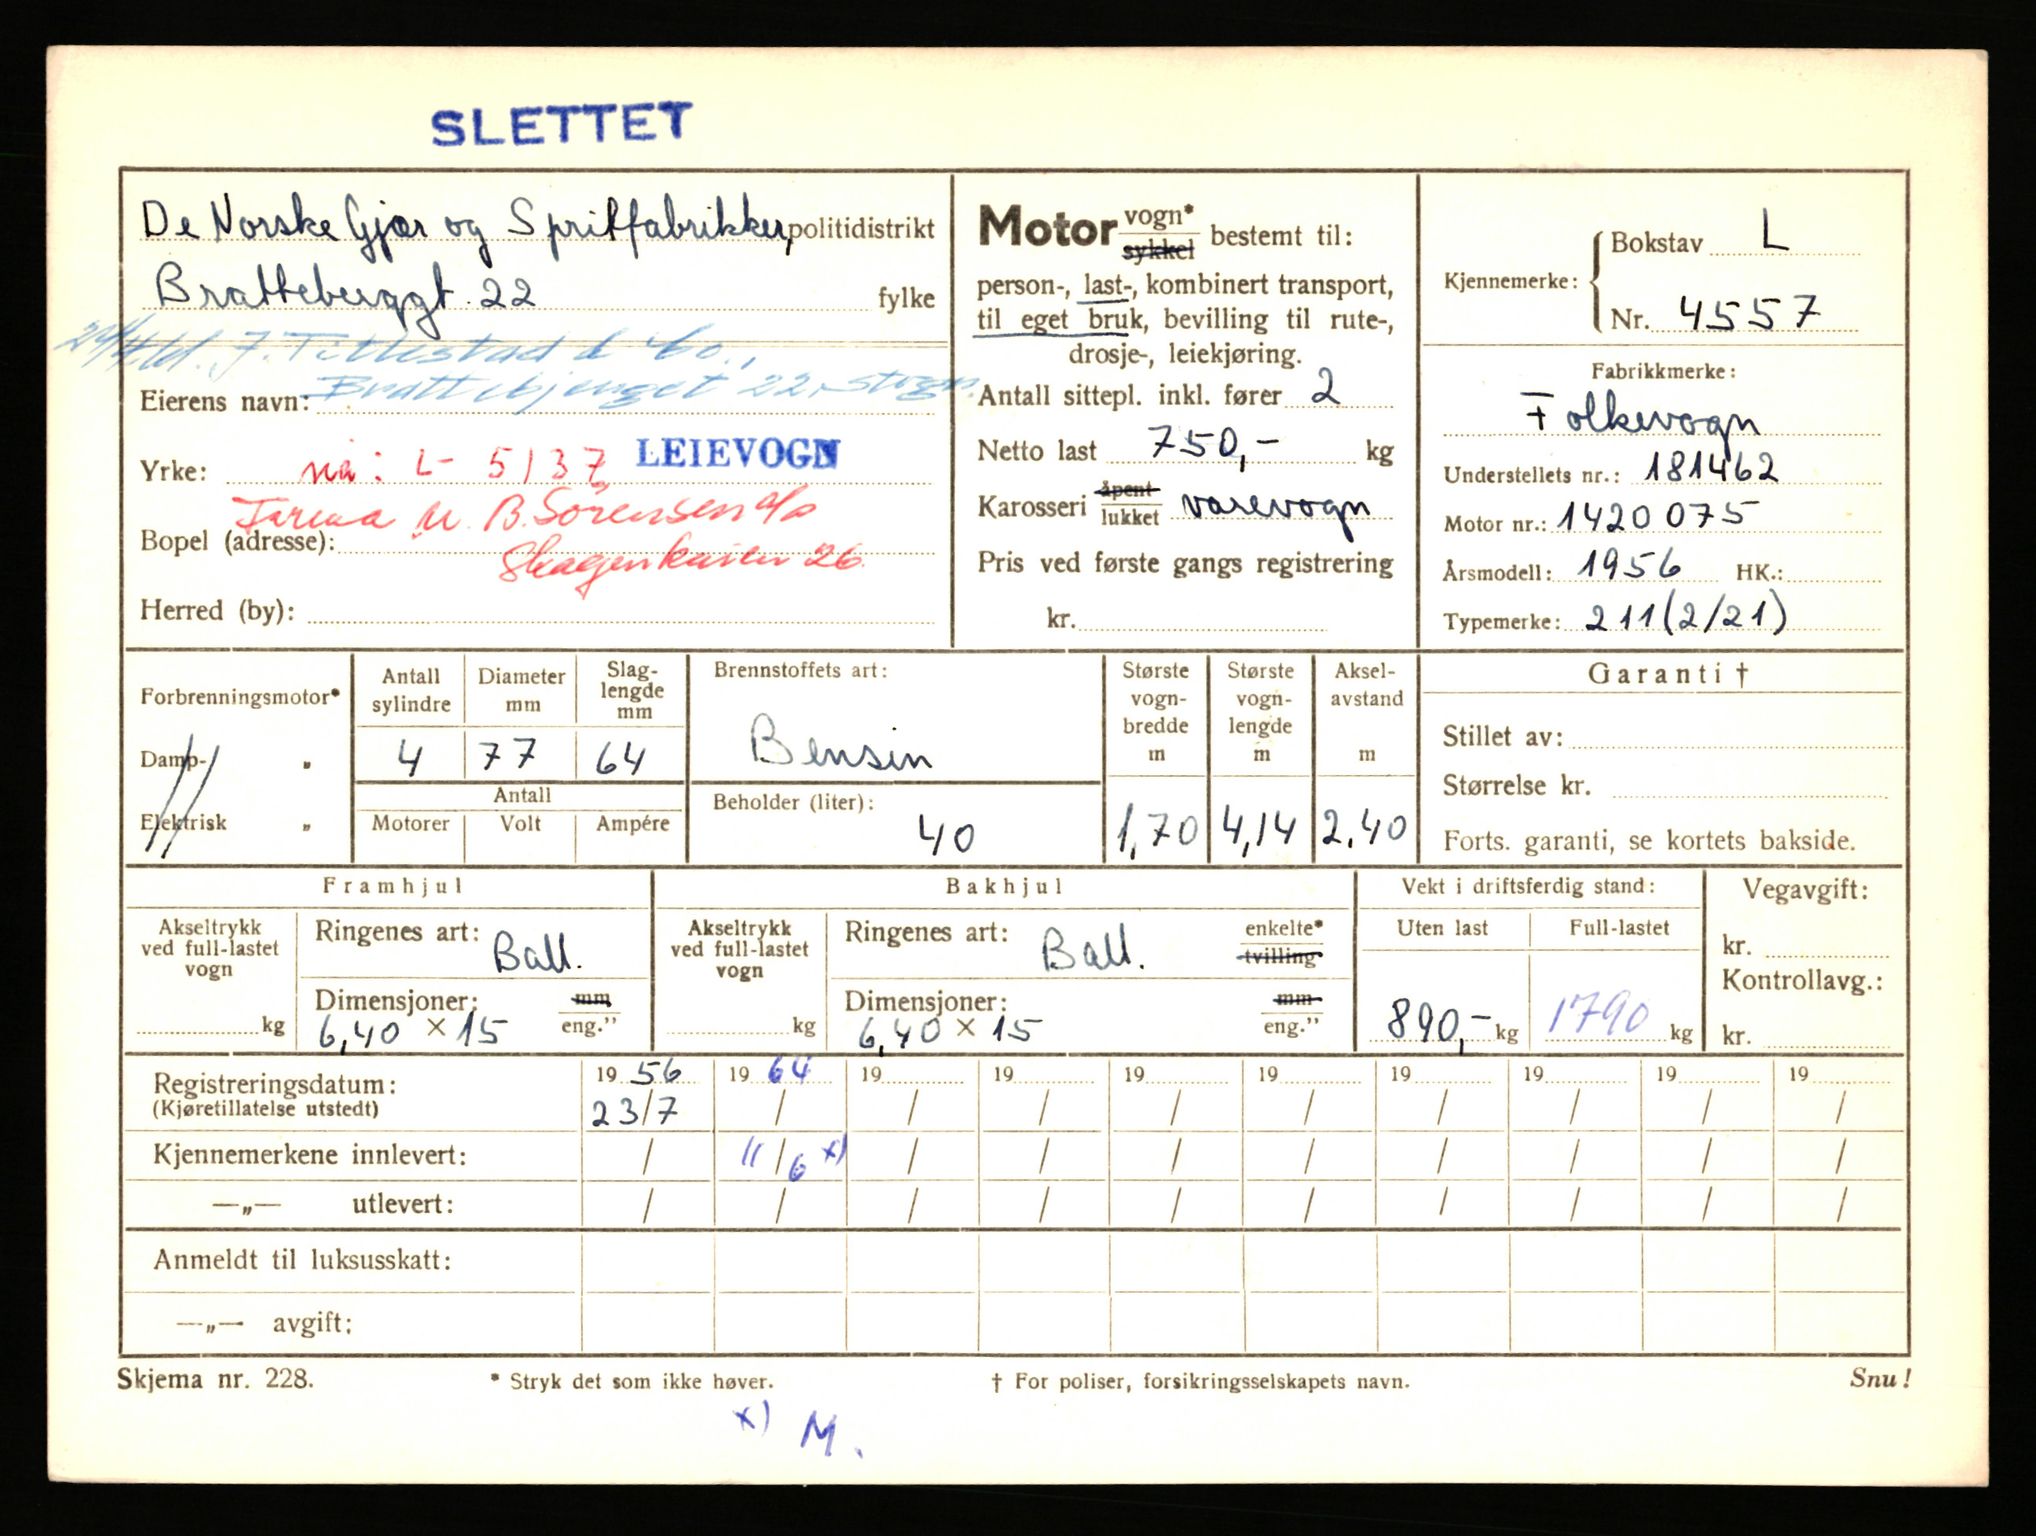 SLETTET
De Norske Gjær og Spritfabrikker, politidistrikt
Bratteberggt. 22 fylke
J. Tillestad & Co.,
22, Stvgr.
Eierens navn:
Yrke: nå: L- 5137 LEIEVOGN
Firma M. B. Sørensen a/s
Bopel (adresse):
Skagenkaien 26.
Herred (by):
Motor vogn* sykkel bestemt til:
person-, last-, kombinert transport,
til eget bruk, bevilling til rute-,
drosje-, leiekjøring.
Antall sittepl. inkl. fører 2
Netto last 750,- kg
Karosseri åpent lukket varevogn
Pris ved første gangs registrering
kr.
Kjennemerke: Bokstav L
Nr. 4557
Fabrikkmerke:
Folkevogn
Understellets nr.: 181462
Motor nr.: 1420075
Årsmodell: 1956 HK.:
Typemerke: 211(2/21)
Forbrenningsmotor*
Damp- „
Elektrisk „
Antall sylindre Diameter mm Slag-lengde mm
4 77 64
Antall
Motorer Volt Ampére
Brennstoffets art:
Bensin
Beholder (liter):
40
Største vogn-bredde m Største vogn-lengde m Aksel-avstand m
1,70 4,14 2.40
Garanti †
Stillet av:
Størrelse kr.
Forts. garanti, se kortets bakside.
Framhjul
Akseltrykk ved full-lastet vogn
kg
Ringenes art: Ball.
Dimensjoner: mm
6,40 × 15 eng.”
Bakhjul
Akseltrykk ved full-lastet vogn
kg
Ringenes art: Ball. enkelte* tvilling
Dimensjoner: mm
6,40 × 15 eng.”
Vekt i driftsferdig stand:
Uten last Full-lastet
890,- kg 1790 kg
Vegavgift:
kr.
Kontrollavg.:
kr.
Registreringsdatum: 19 56 19 64 19 19 19 19 19 19 19 19
(Kjøretillatelse utstedt) 23/7 / / / / / / / / /
Kjennemerkene innlevert: / 11/6 x) / / / / / / / /
—„— utlevert: / / / / / / / / / /
Anmeldt til luksusskatt:
—„— avgift:
Skjema nr. 228. * Stryk det som ikke høver. † For poliser, forsikringsselskapets navn. Snu!
x) M.